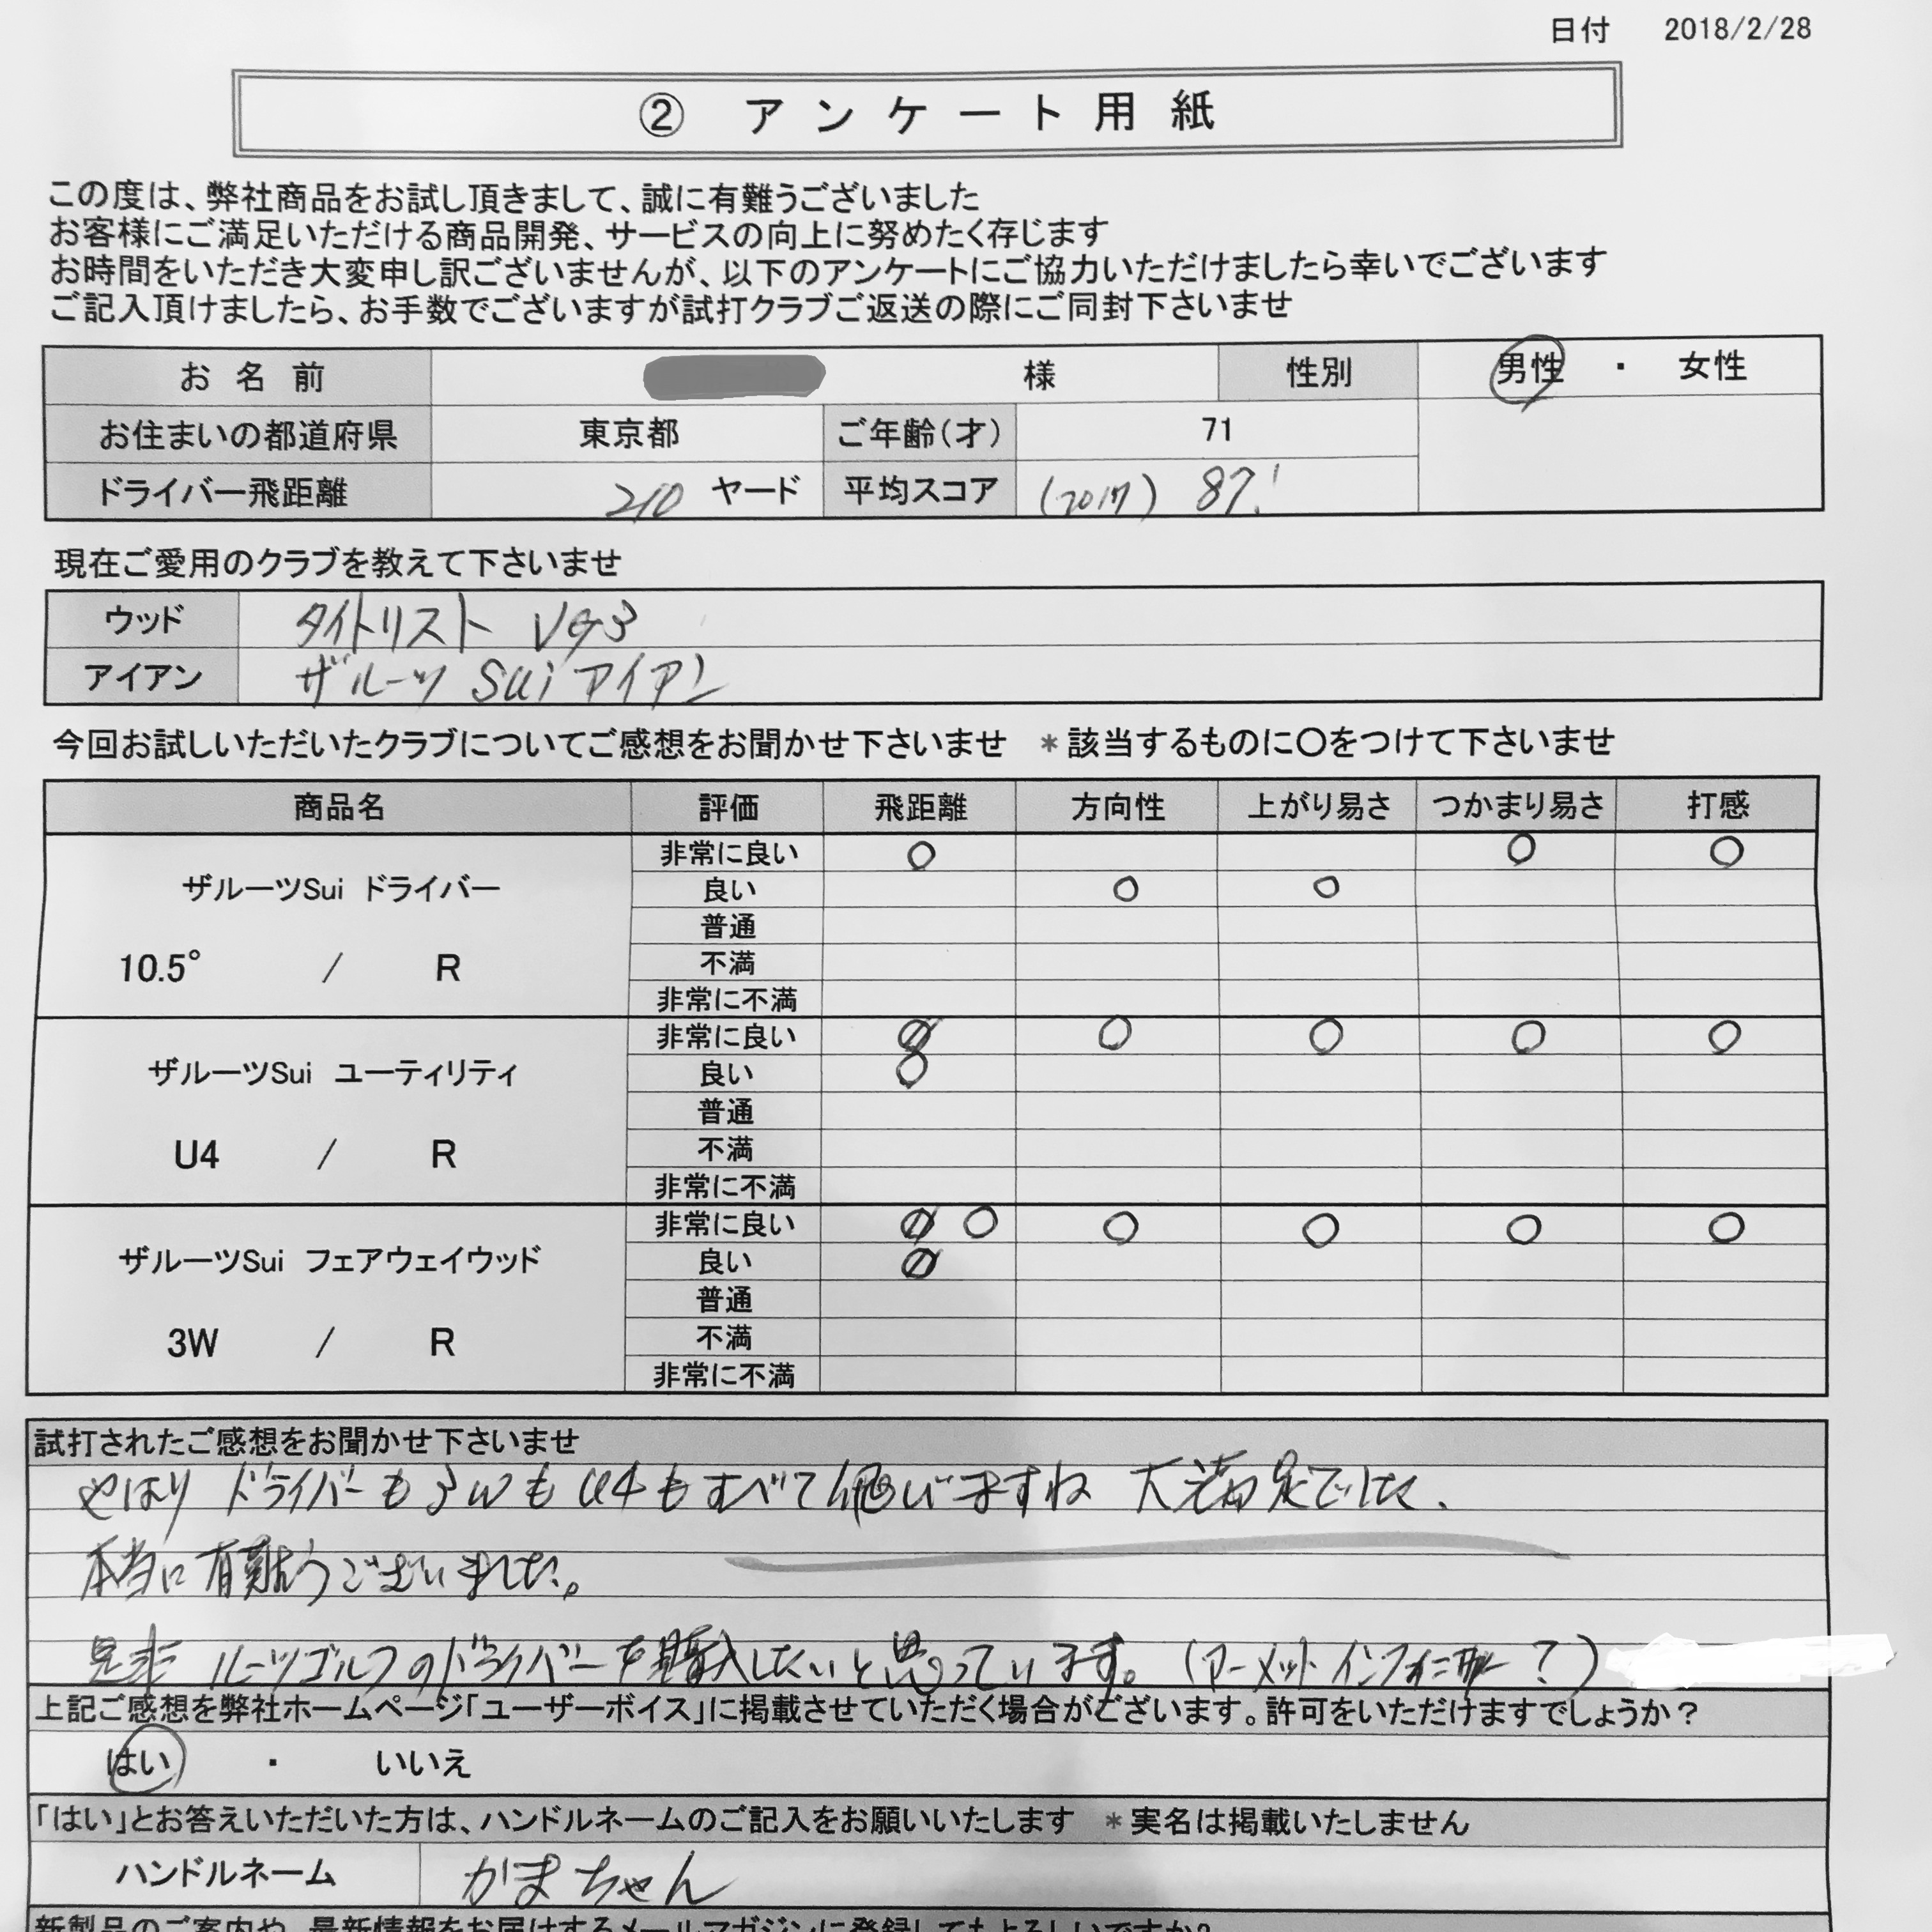 日付 2018/2/28
② アンケート用紙
この度は、弊社商品をお試し頂きまして、誠に有難うございました
お客様にご満足いただける商品開発、サービスの向上に努めたく存じます
お時間をいただき大変申し訳ございませんが、以下のアンケートにご協力いただけましたら幸いでございます
ご記入頂けましたら、お手数でございますが試打クラブご返送の際にご同封下さいませ
お名前 様 性別 男性 ・ 女性
お住まいの都道府県 東京都 ご年齢(才) 71
ドライバー飛距離 210 ヤード 平均スコア (2017) 87.1
現在ご愛用のクラブを教えて下さいませ
ウッド タイトリスト VG3
アイアン ザルーツ Sui アイアン
今回お試しいただいたクラブについてご感想をお聞かせ下さいませ *該当するものに〇をつけて下さいませ
商品名 評価 飛距離 方向性 上がり易さ つかまり易さ 打感
ザルーツSui ドライバー
10.5° / R
非常に良い ○ ○ ○
良い ○ ○
普通
不満
非常に不満
ザルーツSui ユーティリティ
U4 / R
非常に良い ○ ○ ○ ○
良い ○
普通
不満
非常に不満
ザルーツSui フェアウェイウッド
3W / R
非常に良い ○ ○ ○ ○ ○
良い
普通
不満
非常に不満
試打されたご感想をお聞かせ下さいませ
やはり ドライバーも3WもU4もすべて飛びますね 大満足でした、
本当に有難うございました。
是非 ルーツゴルフのドライバーを購入したいと思っています。(アーメット インフィニティー ?)
上記ご感想を弊社ホームページ「ユーザーボイス」に掲載させていただく場合がございます。許可をいただけますでしょうか?
はい ・ いいえ
「はい」とお答えいただいた方は、ハンドルネームのご記入をお願いいたします *実名は掲載いたしません
ハンドルネーム かまちゃん
新製品のご案内や、最新情報をお届けするメールマガジンに登録してもよろしいですか?